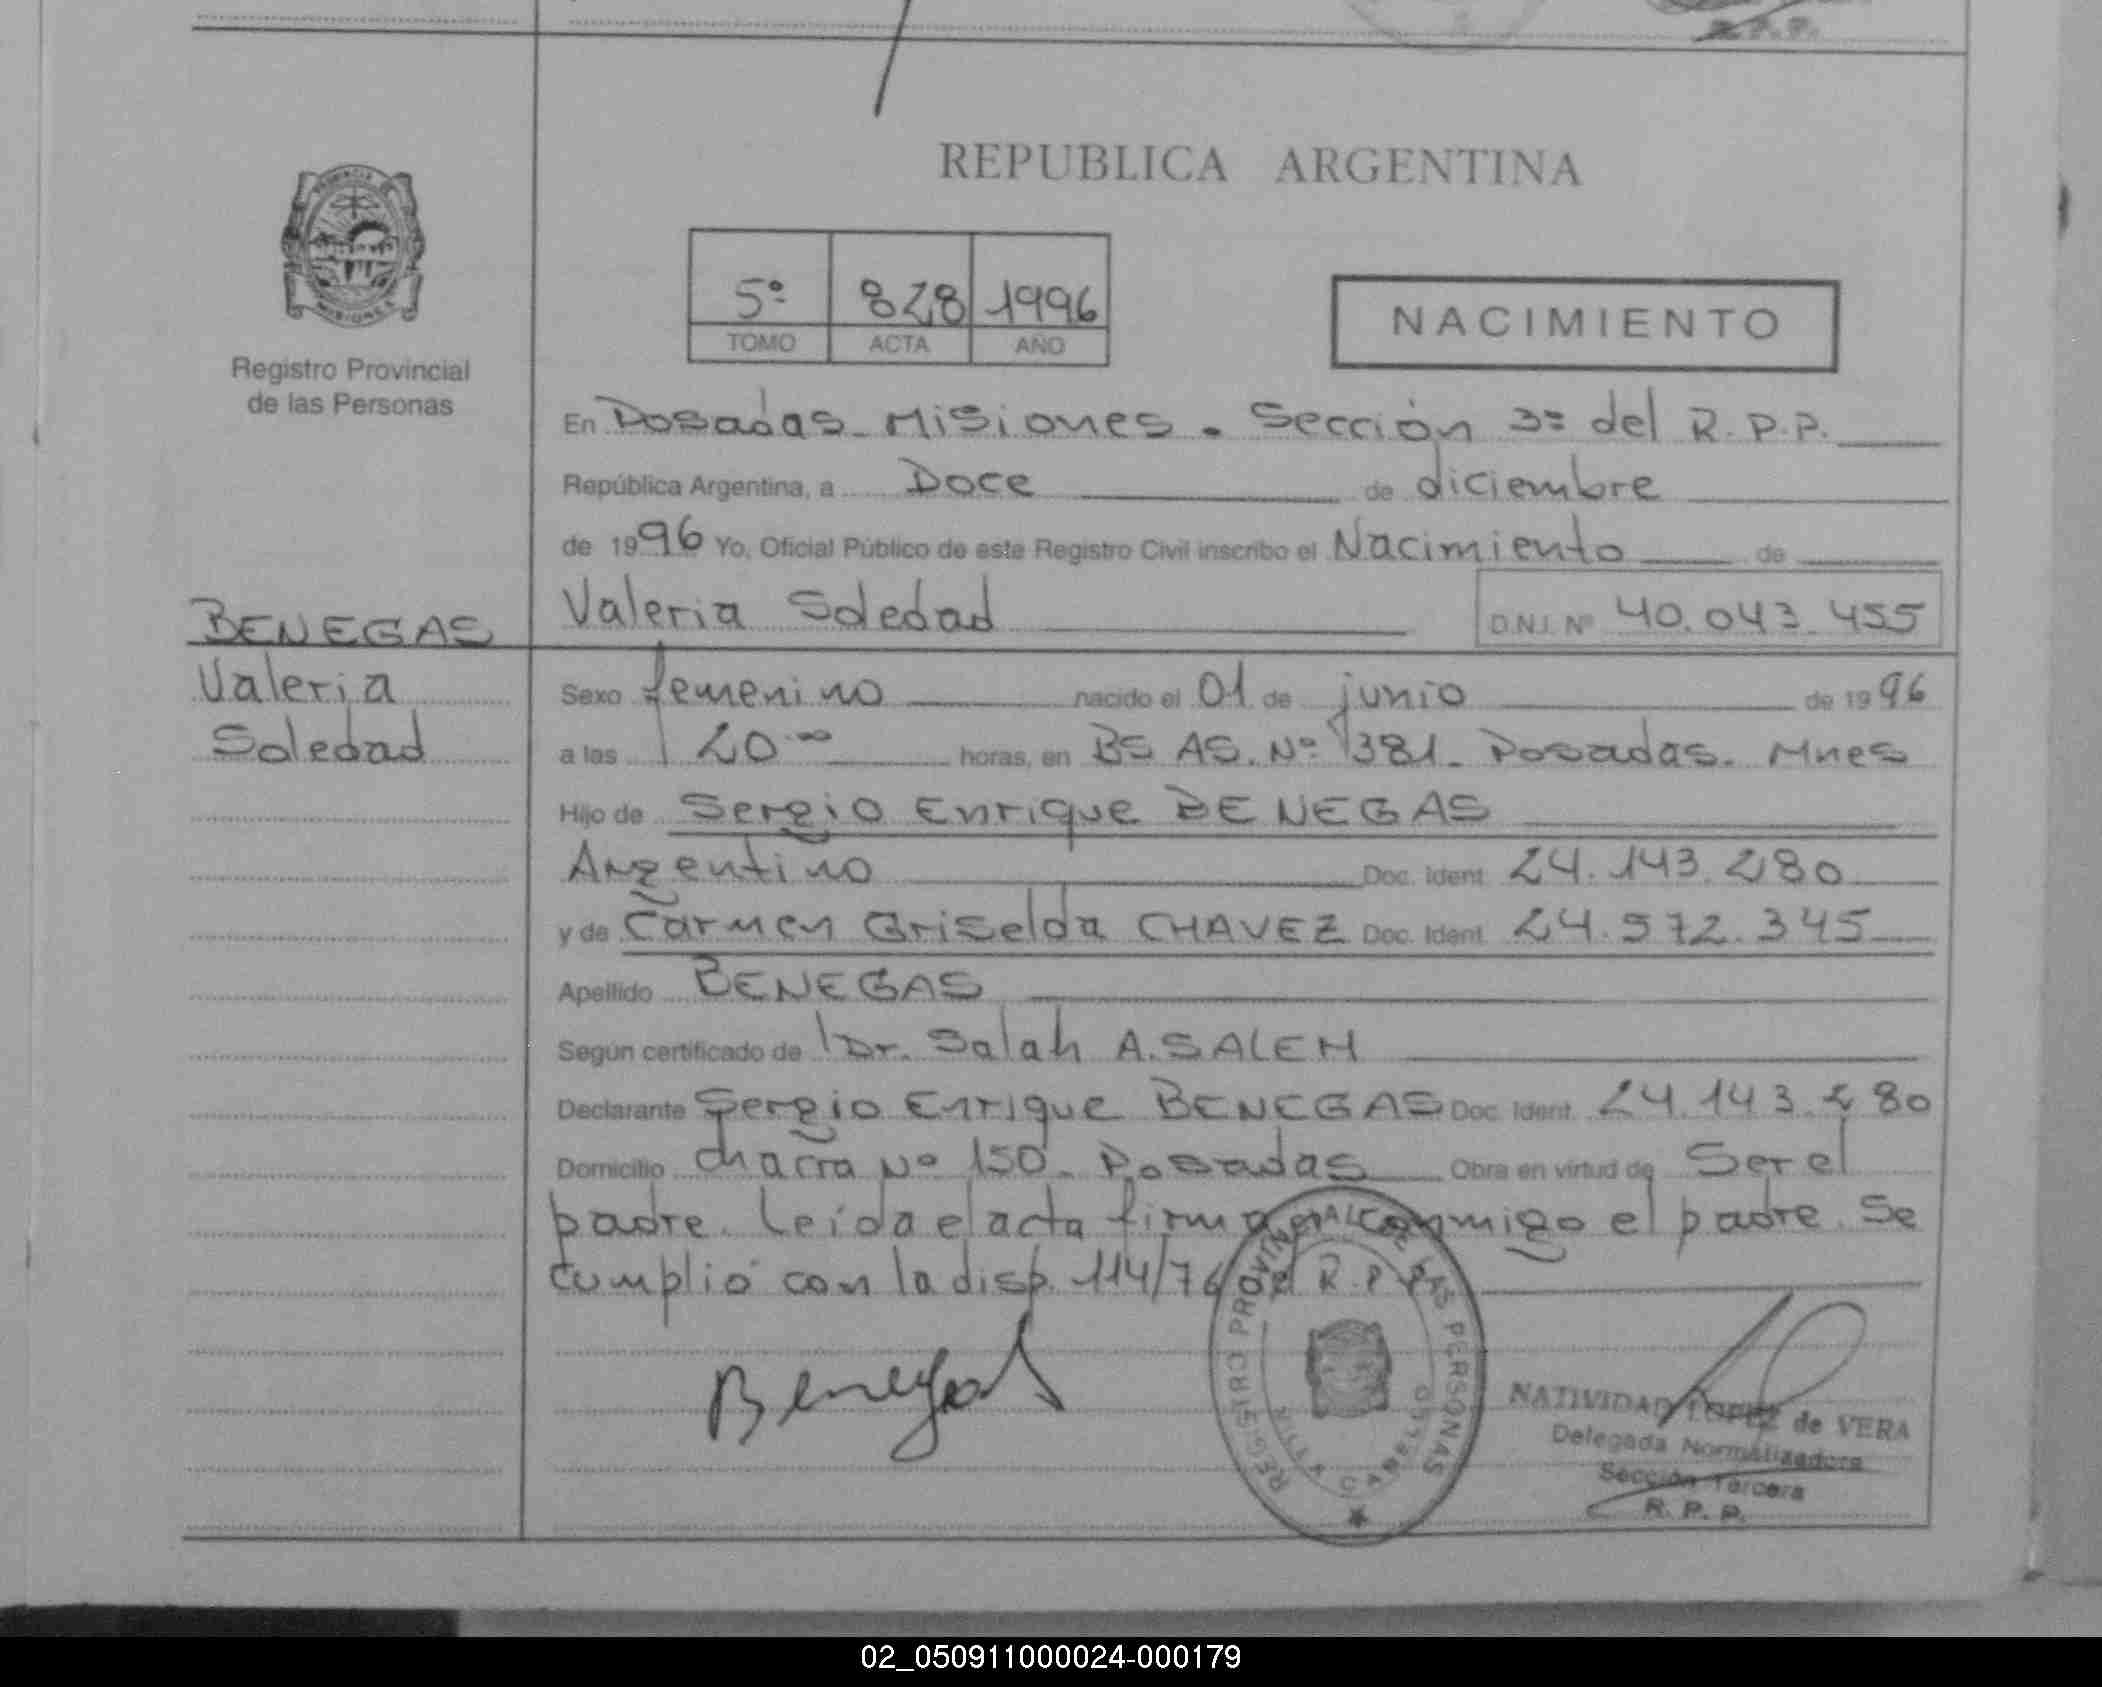 REPUBLICA ARGENTINA
5º 828 1996
TOMO ACTA AÑO
NACIMIENTO
Registro Provincial
de las Personas
En Posadas Misiones. Sección 3ª del R.P.P.
República Argentina, a Doce de diciembre
de 1996 Yo, Oficial Público de este Registro Civil inscribo el Nacimiento de
Valeria Soledad D.N.I. Nº 40.043.455
BENEGAS
Valeria
Soledad
Sexo femenino nacido el 01 de junio de 1996
a las 20.00 horas, en BS AS. Nº 1381. Posadas. Mnes
Hijo de Sergio Enrique BENEGAS
Argentino Doc. Ident. 24.143.280
y de Carmen Griselda CHAVEZ Doc. Ident. 24.572.345
Apellido BENEGAS
Según certificado de Dr. Salah A. SALEH
Declarante Sergio Enrique BENEGAS Doc. Ident. 24.143.280
Domicilio chacra Nº 150. Posadas Obra en virtud de Ser el
padre. Leída el acta firma conmigo el padre. Se
cumplió con la disp. 114/76 del R.P.P.
Benegas
REGISTRO PROVINCIAL DE LAS PERSONAS
VILLA CABELLO
NATIVIDAD LOPEZ de VERA
Delegada Normalizadora
Sección Tercera
R. P. P.
02_050911000024-000179